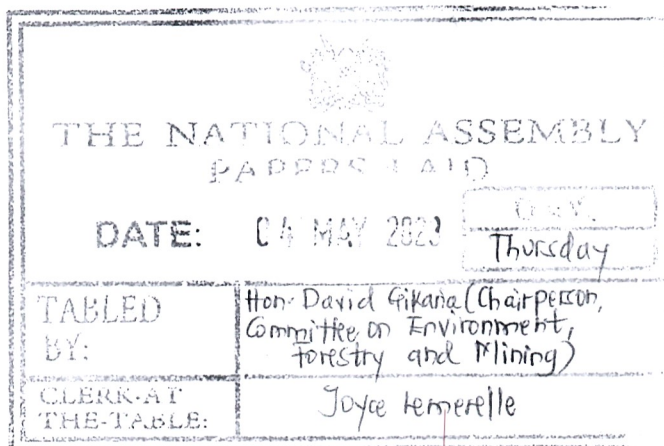 THE NATIONAL ASSEMBLY
PAPERS LAID
DATE: 04 MAY 2023
DAY.
Thursday
TABLED
BY:
Hon. David Gikaria (Chairperson,
Committee on Environment,
Forestry and Mining)
CLERK-AT
THE-TABLE:
Joyce Lemerelle